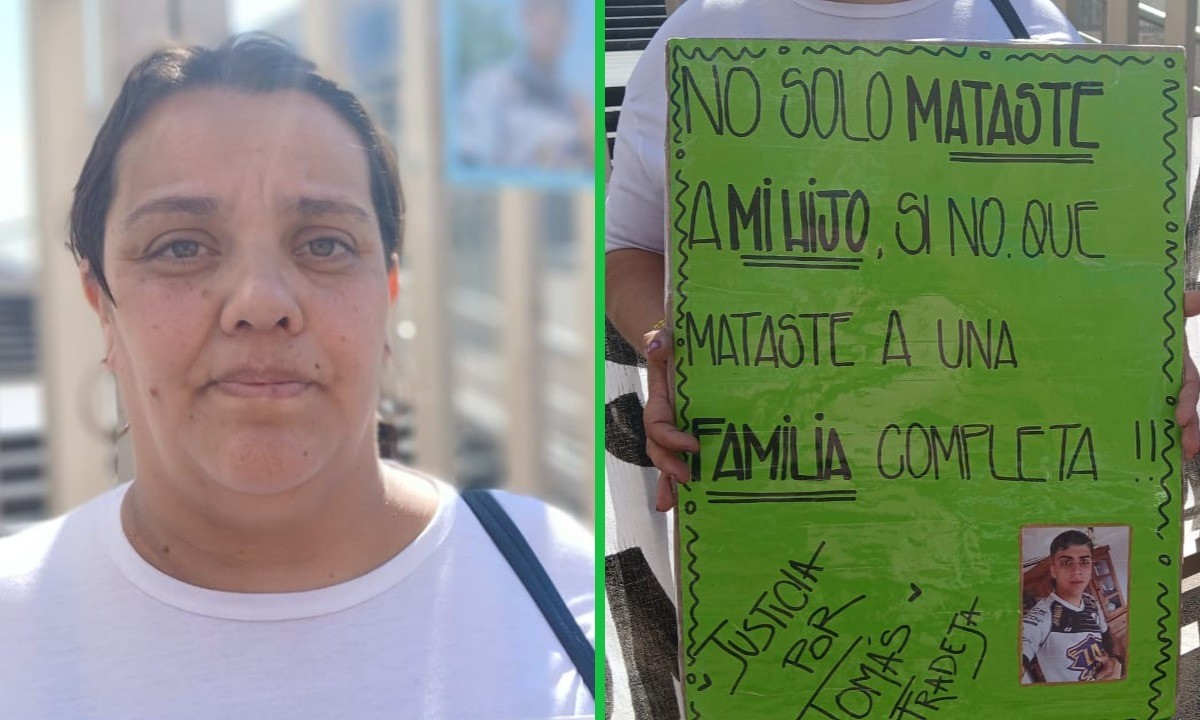 NO SOLO MATASTE
A MI HIJO, SI NO. QUE
MATASTE A UNA
FAMILIA COMPLETA !!
JUSTICIA
POR
TOMÁS
TRADEJA